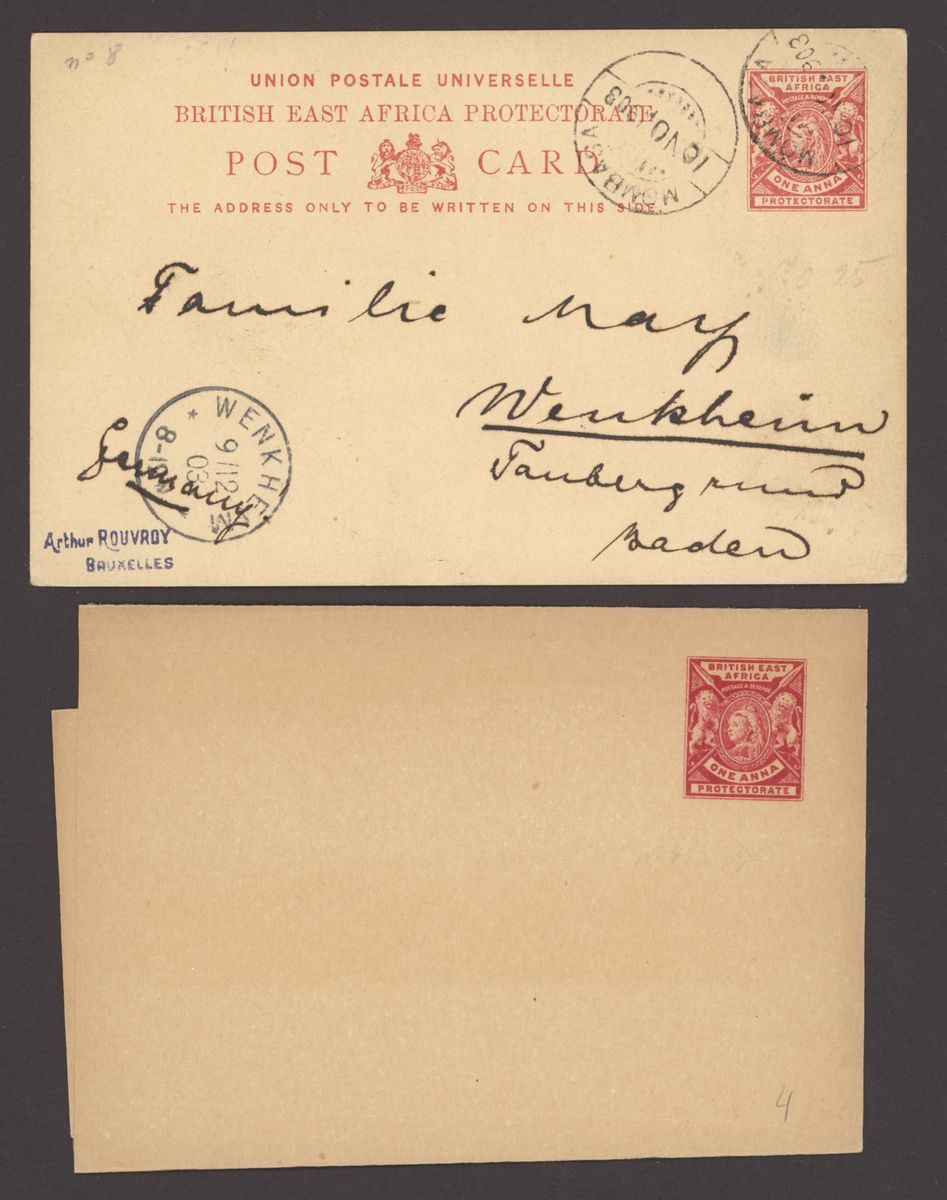 no 8
UNION POSTALE UNIVERSELLE
BRITISH EAST AFRICA PROTECTORATE
POST CARD
THE ADDRESS ONLY TO BE WRITTEN ON THIS SIDE.
MOMBASA
10 NO 1903
MOMBASA
BRITISH EAST
AFRICA
POSTAGE & REVENUE
ONE ANNA
PROTECTORATE
25
Familie Marx
Wenkheim
Taubergrund
Baden
Germany
WENKHEIM
9/12
03
8-
Arthur ROUVROY
BRUXELLES
BRITISH EAST
AFRICA
POSTAGE & REVENUE
ONE ANNA
PROTECTORATE
4